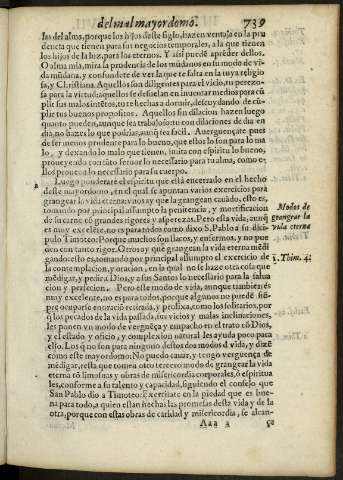 del mal mayordomo. 739
las del alma, porque los hijos deste siglo, hazen ventaja en la pru
dencia que tienen para sus negocios temporales, a la que tienen
los hijos de la luz, para los eternos. Y assi puedẽ apreder dellos.
O alma mia, mira la prudencia de los mũdanos en su modo de vi-
da mũdana, y confundete de ver la que te falta en la tuya religio
sa, y Christiana. Aquellos son diligentes para el vicio, tu perezo-
sa para la virtud: aquellos se desuelan en inuentar medios para cũ
plir sus malos intẽtos, tu te hechas a dormir, descuydando de cũ-
plir tus buenos propositos. Aquellos sin dilacion hazen luego
quanto pueden, aunque sea trabajoso: tu con dilaciones de dia en
dia, no hazes lo que podrias, aunq̃ sea facil. Auerguençate pues
de ser menos prudente para lo bueno, que ellos lo son para lo mal
lo, y dexando lo malo que tienen, imita con espiritu lo bueno,
proueyendo con tãto feruor lo necessario para tu alma, como e-
llos proueẽ lo necessario para su cuerpo.
2 Luego ponderarè el espiritu que està encerrado en el hecho
deste mayordomo, en el qual se apuntan varios exercicios para
grangear la vida eterna: vnos ay que la grangean cauãdo, esto es,
tomando por principal assumpto la penitencia, y mortificacion
de su carne cõ grandes rigores y asperezas. Pero esta vida, aunq̃
es muy excelẽte, no es para todos como dixo S. Pablo a su dici-
pulo Timoteo: Porque muchos son flacos, y enfermos, y no pue
den con tanto rigor. Otros ay què grangean la vida eterna mẽdi
gando: esto es, tomando por principal assumpto el exercicio de
la contemplacion, y oracion, en la qual no se haze otra cosa que
mẽdigar, y pedir a Dios, y a sus Santos lo necessario para la salua
cion y perfecion. Pero este modo de vida, aunque tambien es
muy excelente, no es para todos, porque algunos no puedẽ siẽ-
pre ocuparse en oraciõ retirada, y prolixa, como los solitarios, por
q̃ los pecados de la vida passada, sus vicios y malas inclinaciones,
les ponen vn modo de verguẽça y empacho en el trato cõ Dios,
y el estado y oficio, y complexion natural les ayuda poco para
ello. Los q̃ no son para ninguno destos dos modos d vida, y dizẽ
como este mayordomo: No puedo cauar, y tengo verguẽça de
mẽdigar, resta que tomen otro tercero modo de grangear la vida
eterna cõ limosnas y obras de misericordia corporales, ò espiritua
les, conforme a su talento y capacidad, siguiendo el consejo que
San Pablo dio a Timoteo: Exercitate en la piedad que es bue-
na para todo, a quien estan hechas las promesas desta vida y de la
otra, porque con estas obras de caridad y misericordia, se alcan-
Aaa 2 ça
Modos de
grangear la
vida eterna
1. Thim. 4.